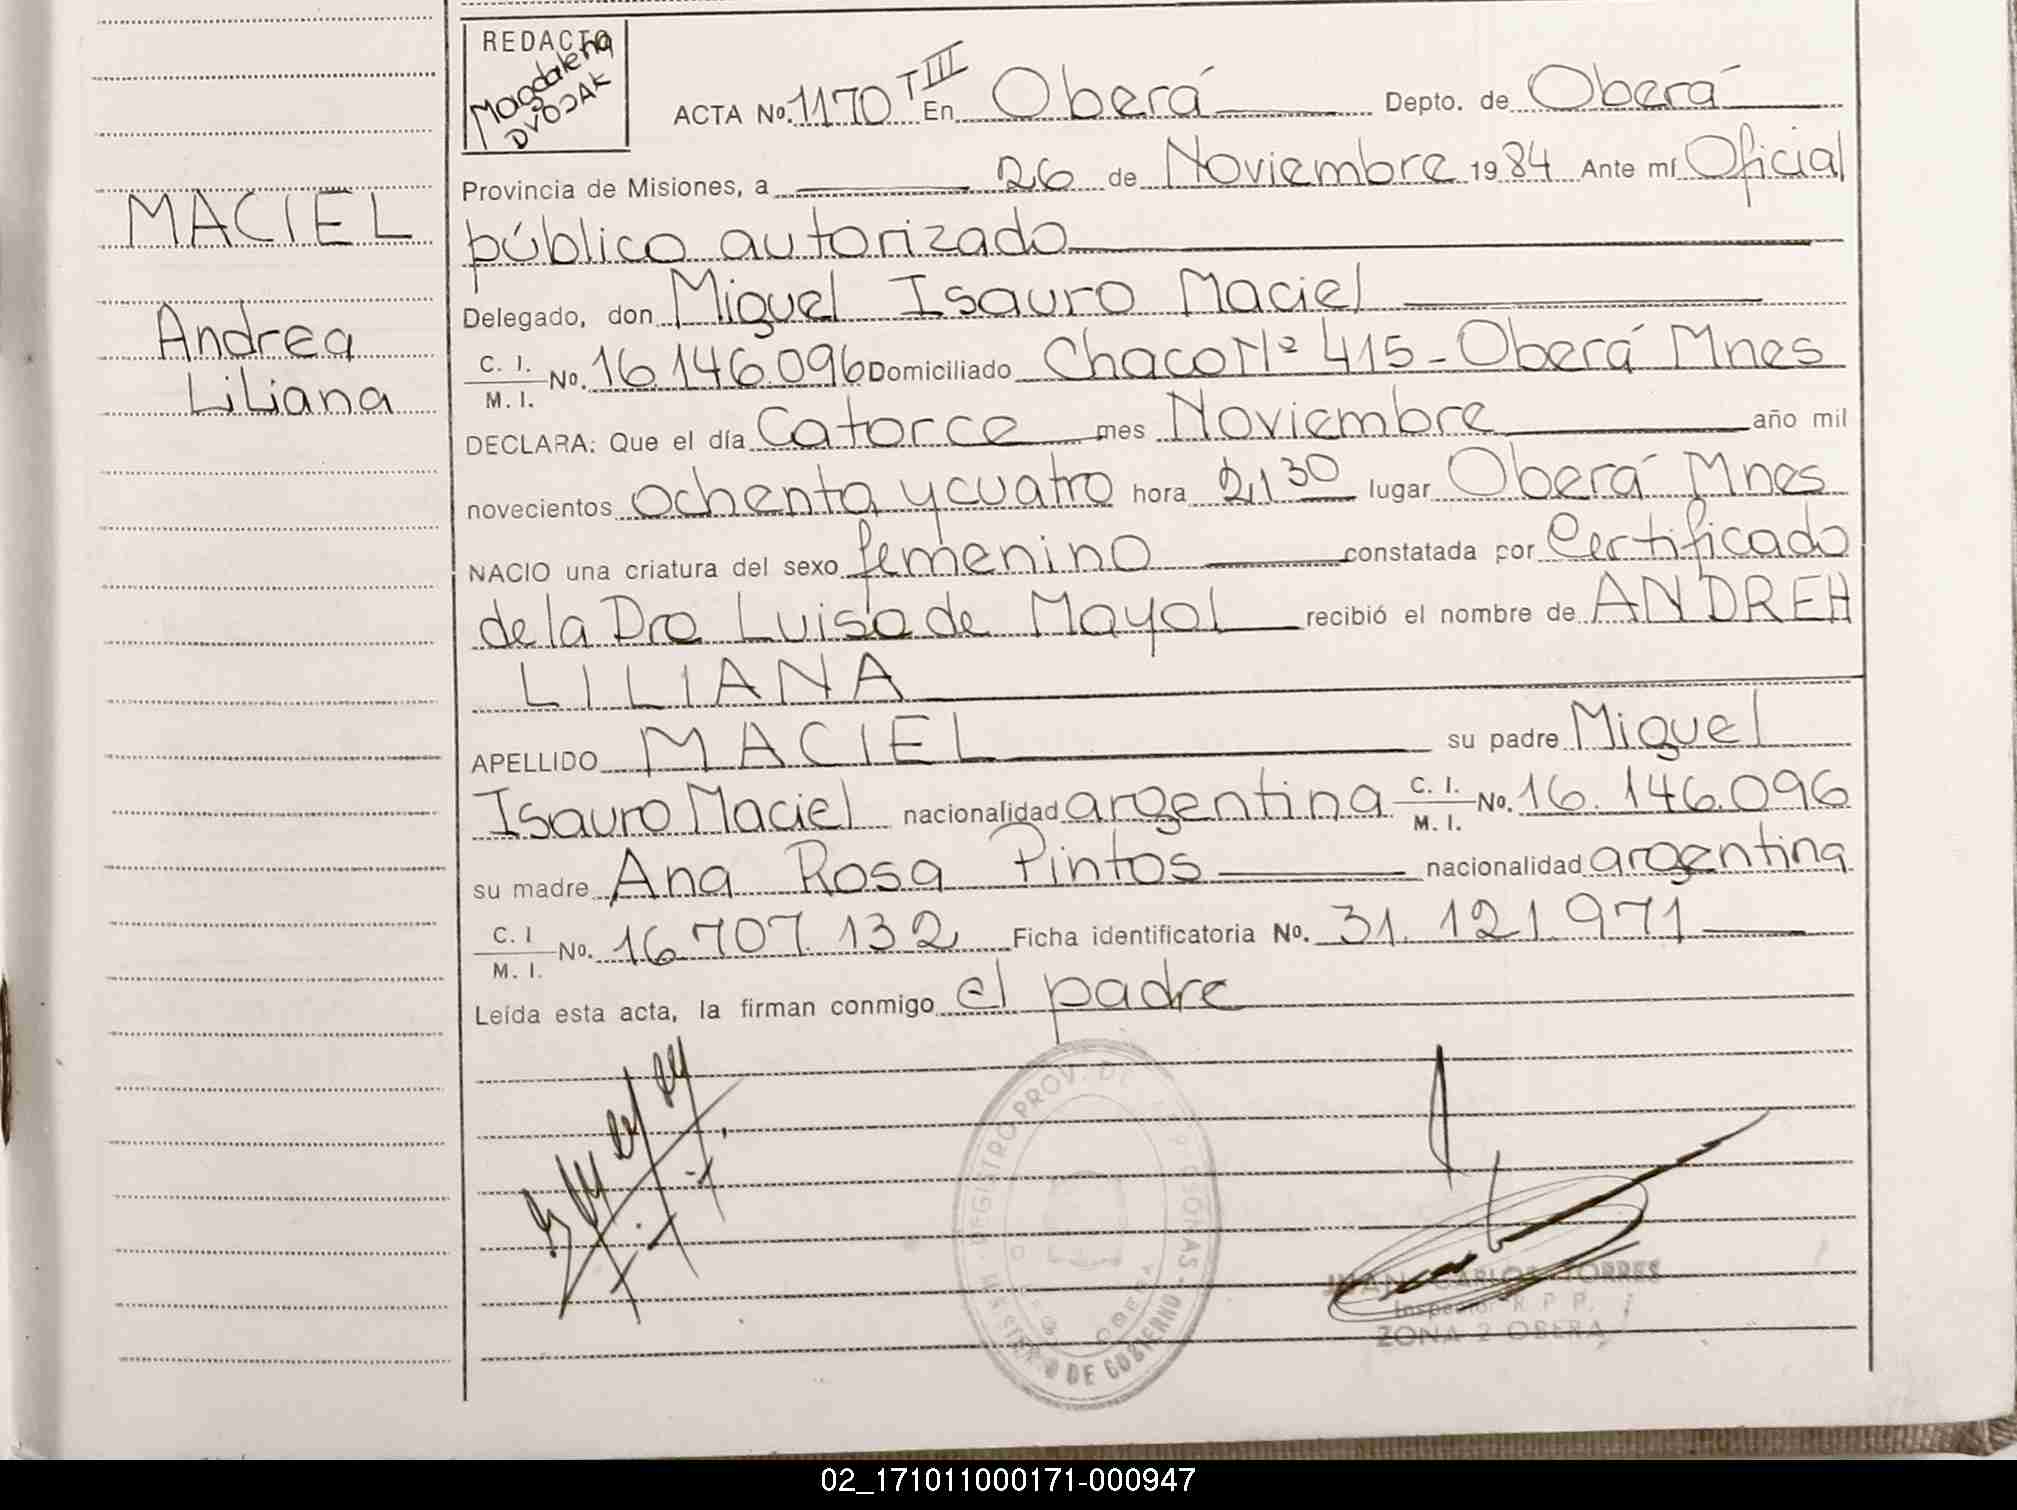 REDACTO
Magdalena
DVOJAK
ACTA No. 1170 T III En Oberá Depto. de Oberá
Provincia de Misiones, a 26 de Noviembre 1984 Ante mí Oficial
público autorizado
MACIEL
Delegado, don Miguel Isauro Maciel
Andrea
Liliana
C. I. / M. I. No. 16.146.096 Domiciliado Chaco Nº 415 - Oberá Mnes
DECLARA: Que el día Catorce mes Noviembre año mil
novecientos ochenta y cuatro hora 21 30 lugar Oberá Mnes
NACIO una criatura del sexo femenino constatada por Certificado
de la Dra Luisa de Mayol recibió el nombre de ANDREA
LILIANA
APELLIDO MACIEL su padre Miguel
Isauro Maciel nacionalidad argentina C. I. / M. I. No. 16.146.096
su madre Ana Rosa Pintos nacionalidad argentina
C. I / M. I. No. 16.707.132 Ficha identificatoria No. 31.121.971
Leída esta acta, la firman conmigo el padre
REGISTRO PROV. DE PERSONAS - MINISTERIO DE GOBIERNO
JUAN CARLOS TORRES
Inspector R. P. P.
ZONA 2 OBERA
02_171011000171-000947